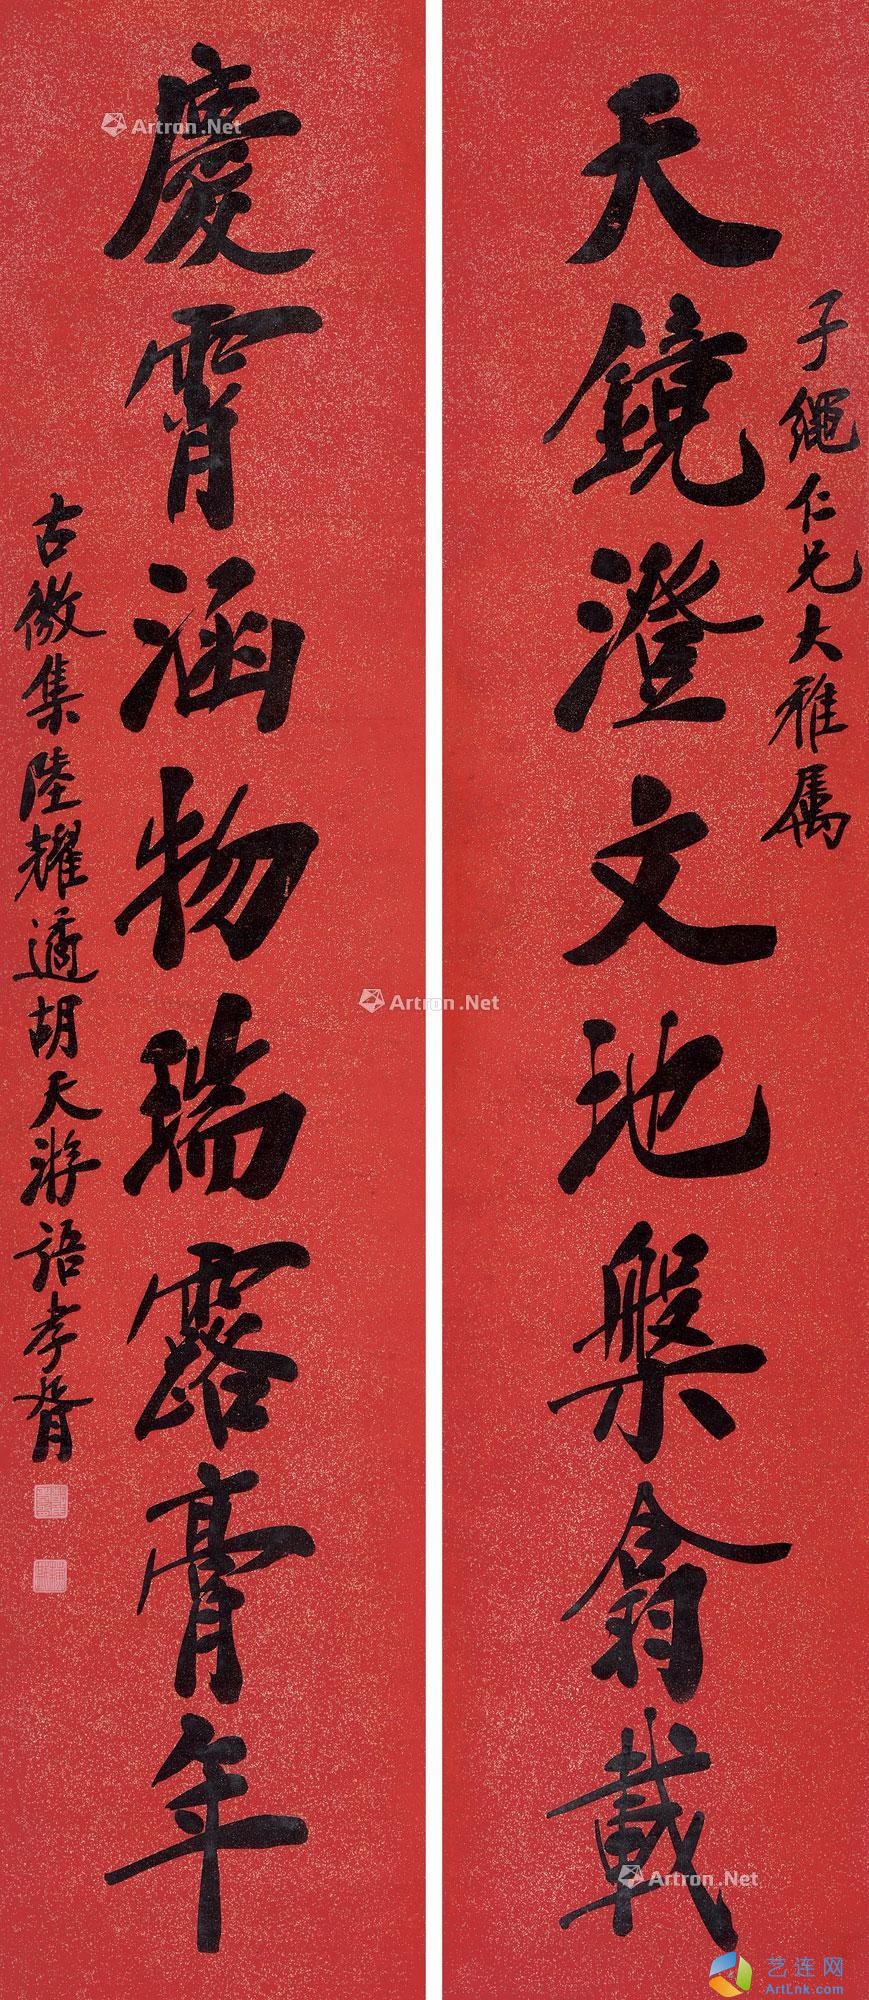 子繩仁兄大雅屬
天鏡澄文池槃翕載
慶霄涵物瑞露膏年
古微集陸耀遹胡天游語孝胥
Artron.Net
Artron.Net
Artron.Net
艺连网
ArtLnk.com